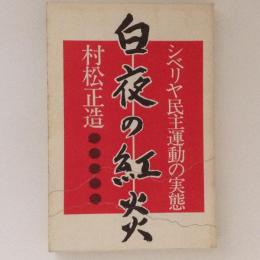 シベリヤ民主運動の実態
白夜の紅炎
村松正造